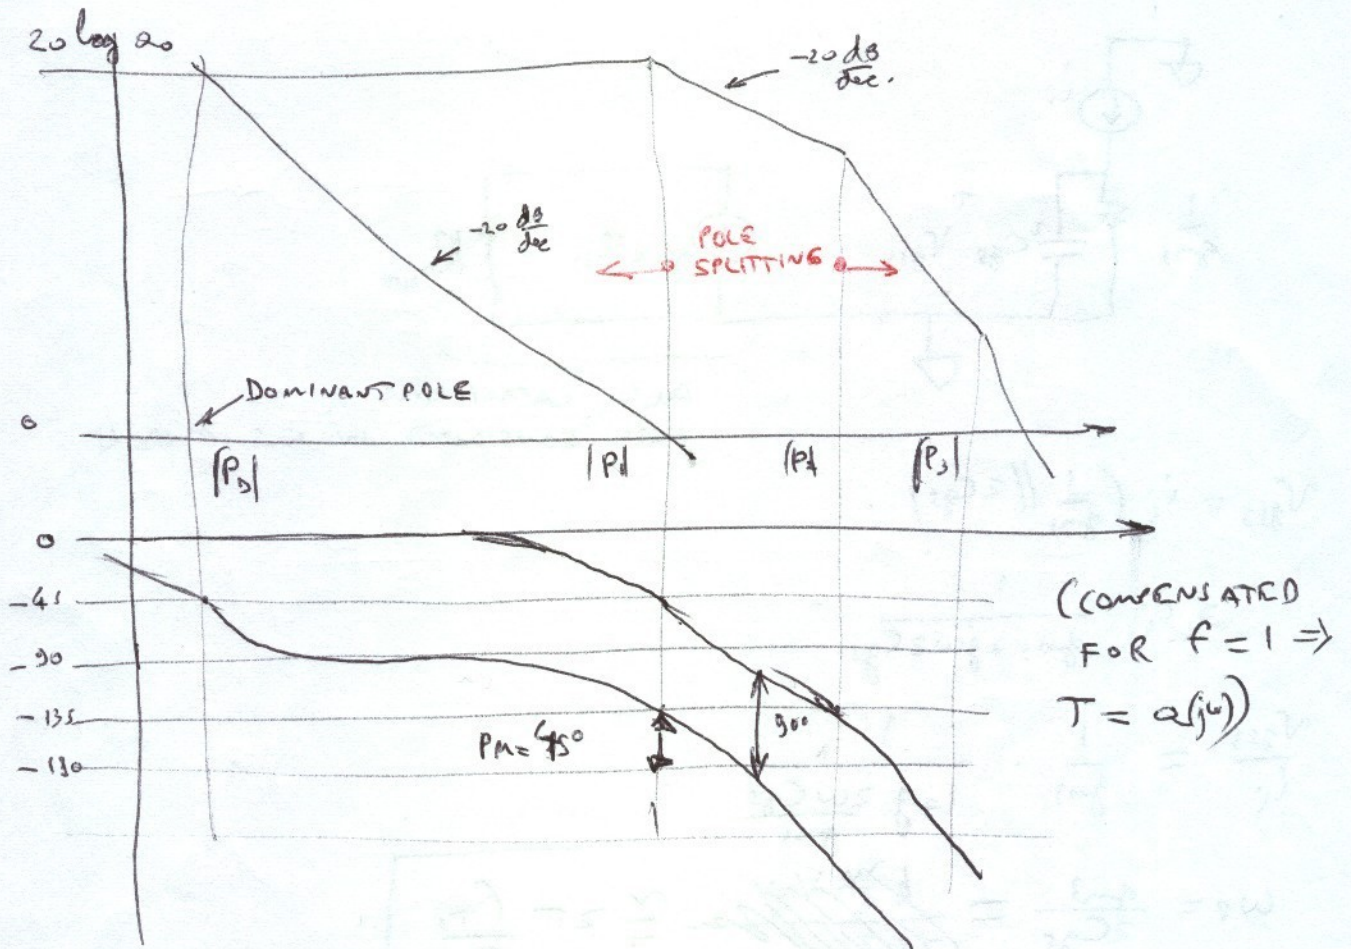 20 log a0
-20 dB/dec.
-20 dB/dec
POLE
SPLITTING
DOMINANT POLE
0
|PD| |P1| |P2| |P3|
0
-45
-90
-135
-180
PM = 45°
90°
(COMPENSATED
FOR f = 1 ⇒
T = a(jω))